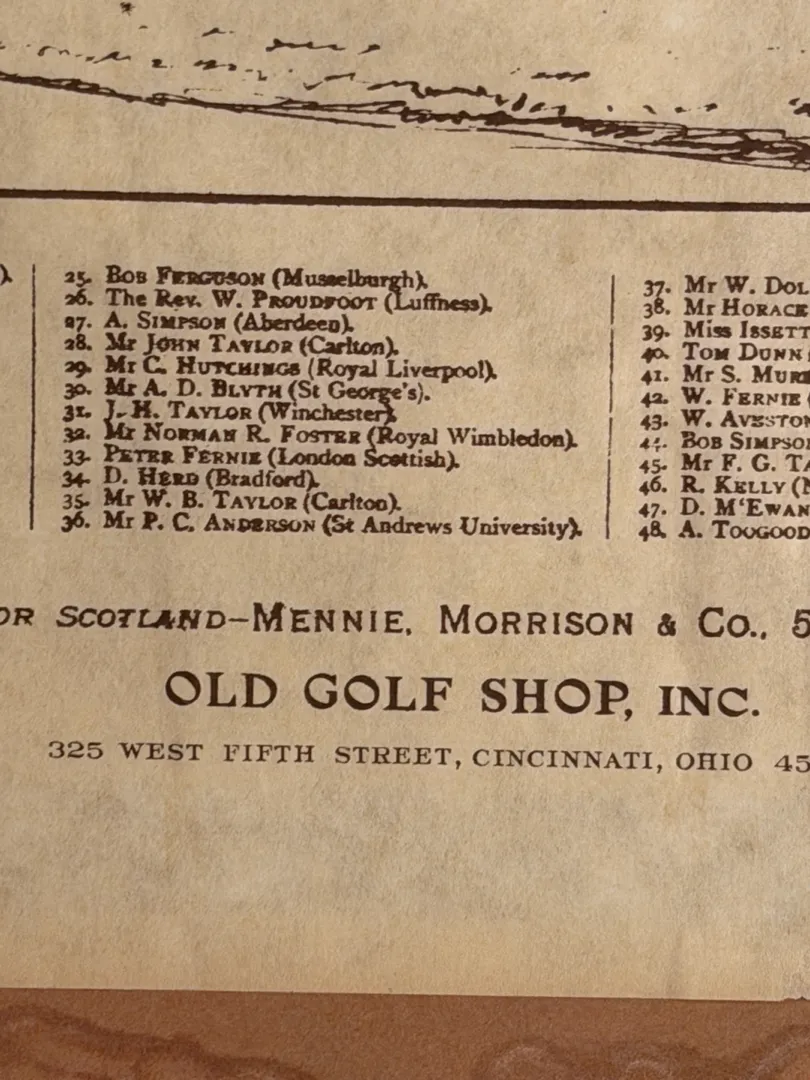 ).
25. BOB FERGUSON (Musselburgh).
26. The Rev. W. PROUDFOOT (Luffness).
27. A. SIMPSON (Aberdeen).
28. Mr JOHN TAYLOR (Carlton).
29. Mr C. HUTCHINGS (Royal Liverpool).
30. Mr A. D. BLYTH (St George's).
31. J. H. TAYLOR (Winchester).
32. Mr NORMAN R. FOSTER (Royal Wimbledon).
33. PETER FERNIE (London Scottish).
34. D. HERD (Bradford).
35. Mr W. B. TAYLOR (Carlton).
36. Mr P. C. ANDERSON (St Andrews University).
37. Mr W. DOL
38. Mr HORACE
39. Miss ISSETT
40. TOM DUNN
41. Mr S. MURE
42. W. FERNIE (
43. W. AVESTON
44. BOB SIMPSO
45. Mr F. G. TA
46. R. KELLY (
47. D. M'EWAN
48. A. TOOGOOD
OR SCOTLAND-MENNIE, MORRISON & CO., 5
OLD GOLF SHOP, INC.
325 WEST FIFTH STREET, CINCINNATI, OHIO 45